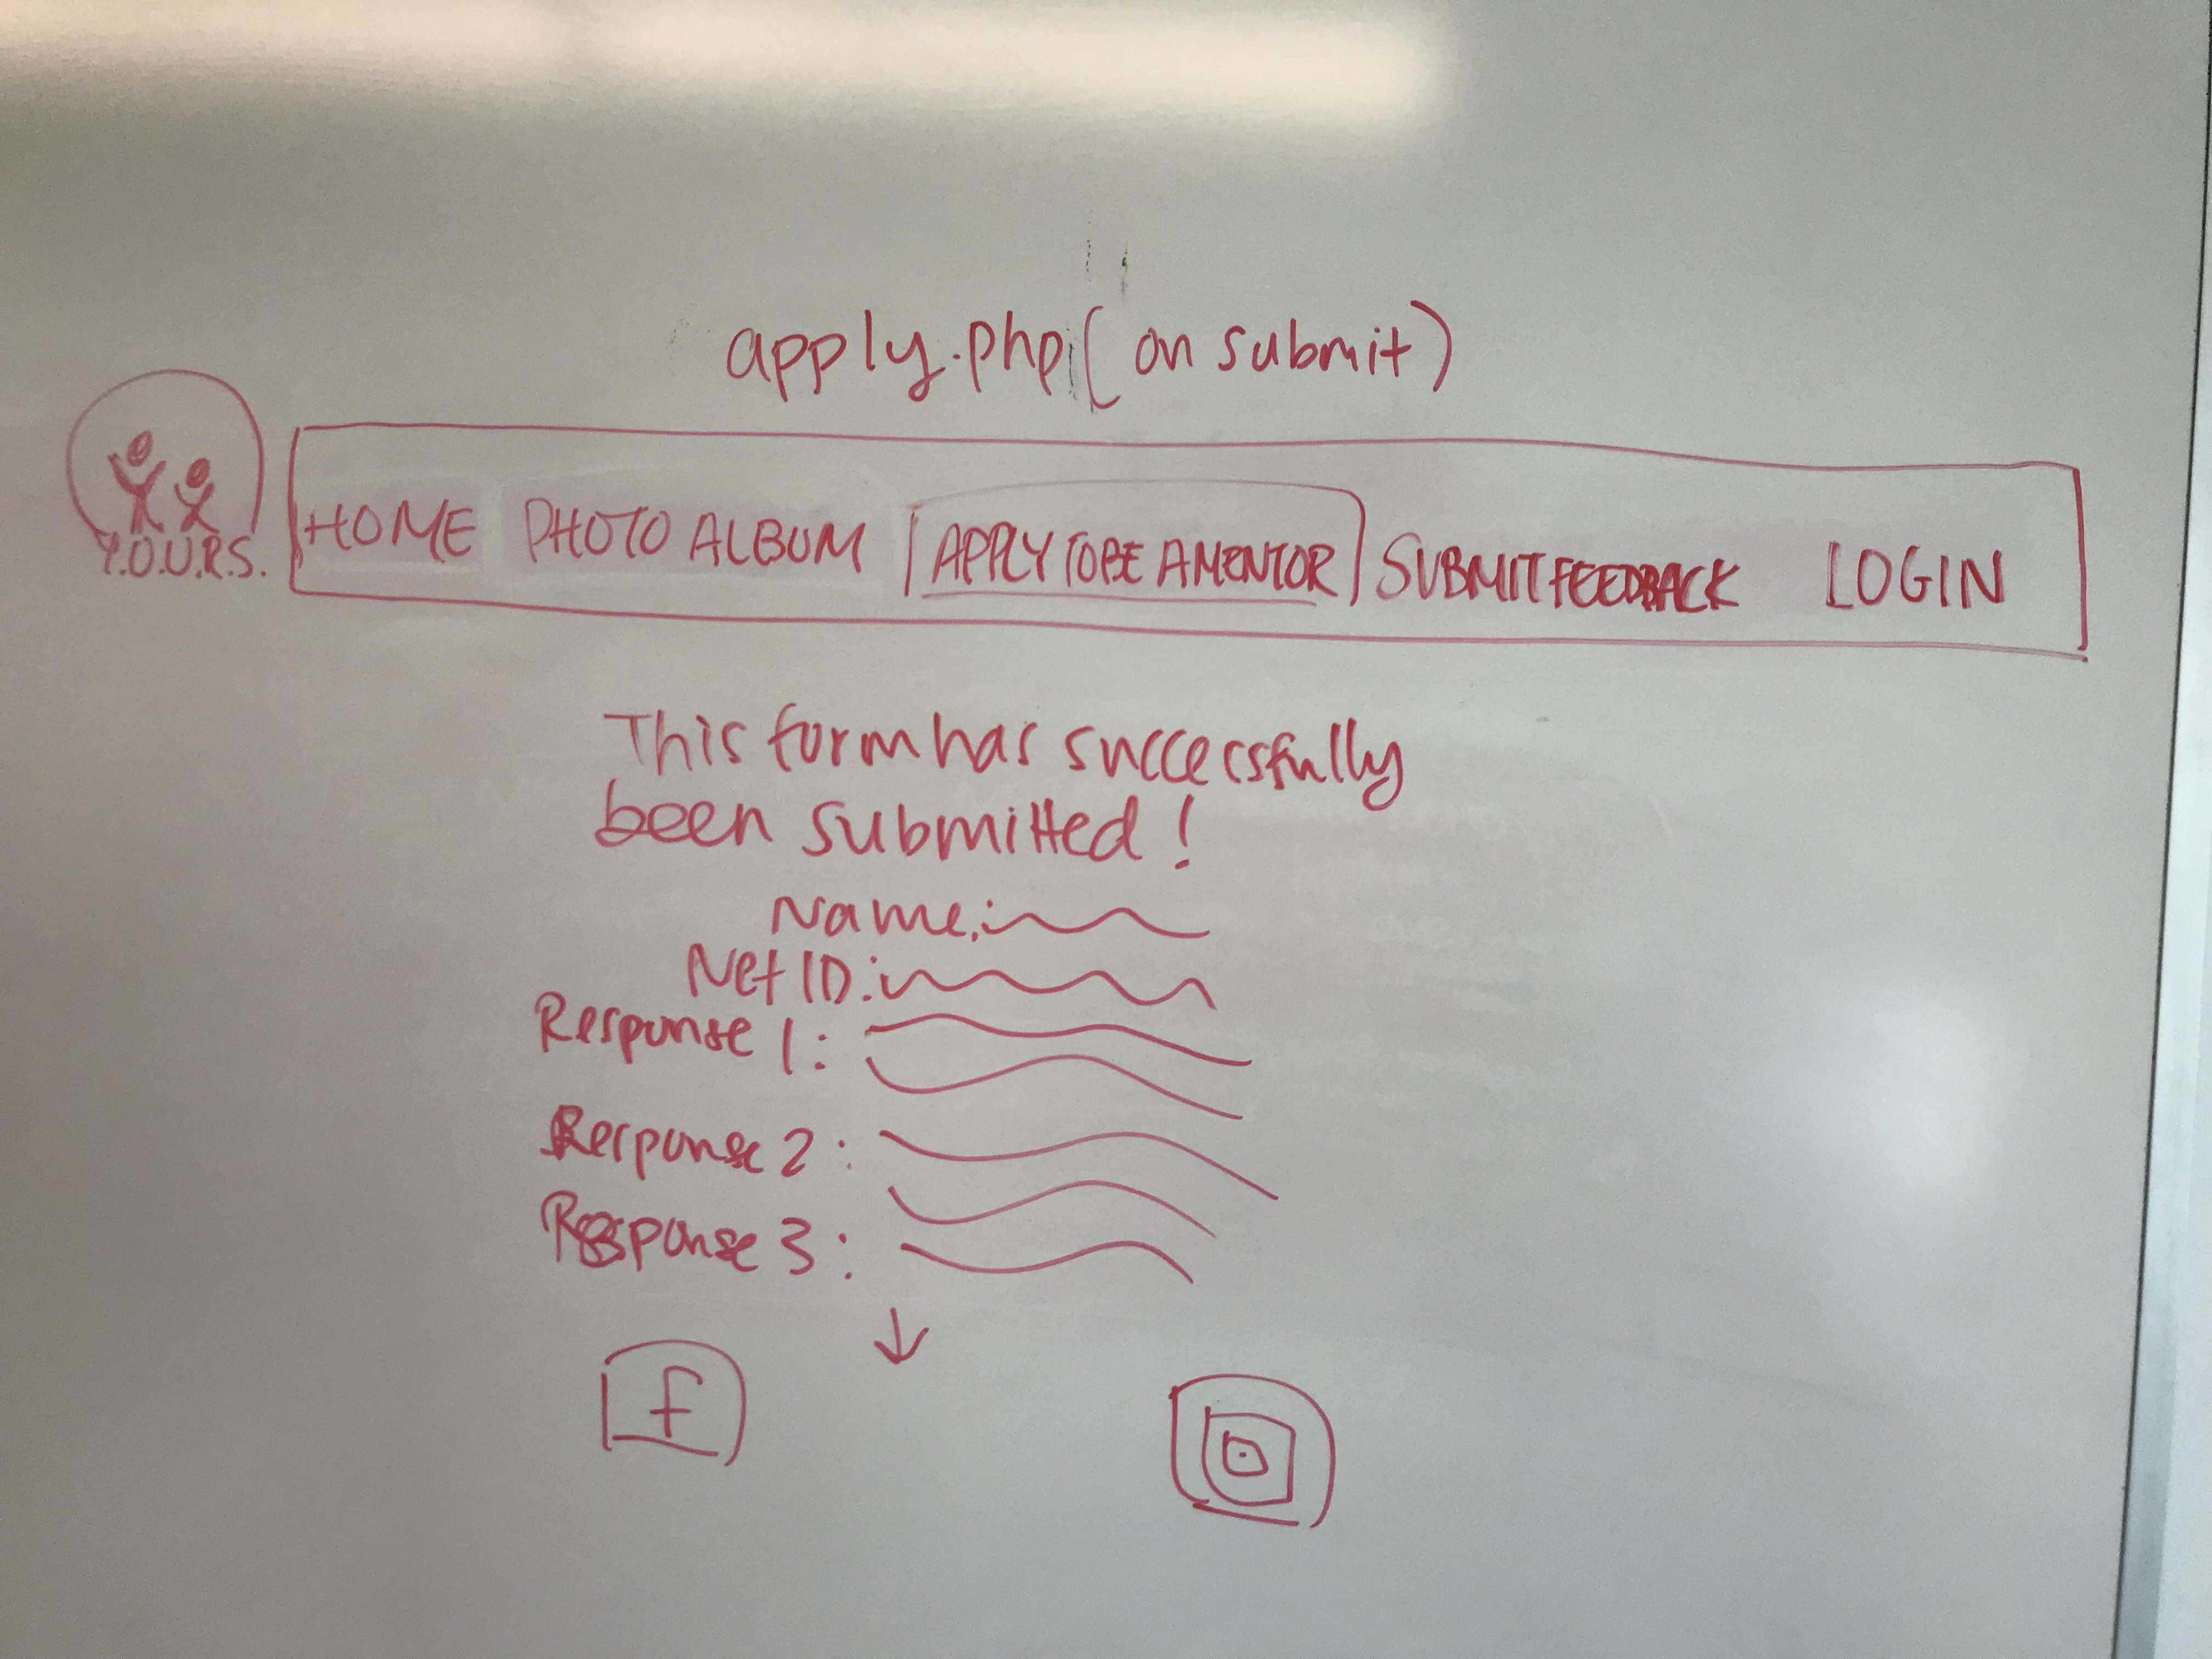 apply.php (on submit)
Y.O.U.R.S.
HOME PHOTO ALBUM APPLY TO BE A MENTOR SUBMIT FEEDBACK LOGIN
This form has successfully
been submitted!
Name:
Net ID:
Response 1:
Response 2:
Response 3:
f